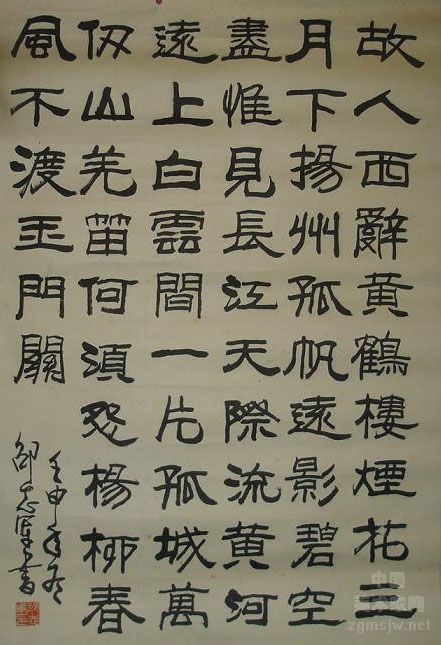 故人西辭黄鶴樓煙三
月下揚州孤帆遠影碧空
盡惟見長江天際流黄河
遠上白雲間一片孤城萬
仞山羌笛何須怨楊柳春
風不渡玉門關
壬申年冬
邵志書
中国美术家网
zgmsjw.net